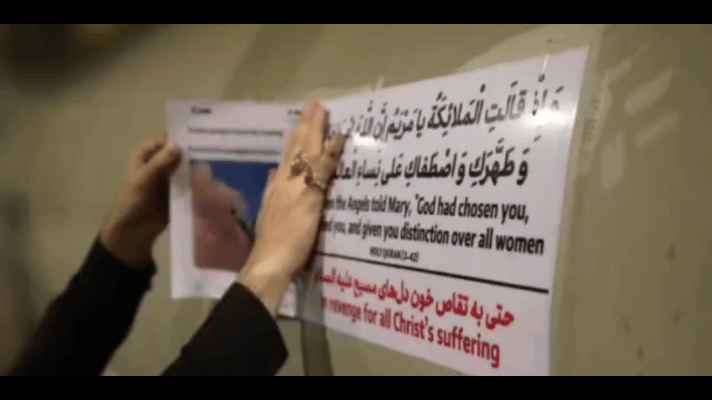 وَ إِذْ قَالَتِ الْمَلائِكَةُ يا مَرْيَمُ إِنَّ اللَّهَ
وَ طَهَّرَكِ وَ اصْطَفاكِ عَلى نِساءِ
the Angels told Mary, "God had chosen you,
you, and given you distinction over all women
HOLY QURAN (3-42)
حتی به تقاص خون دل‌های مسیح علیه
revenge for all Christ's suffering